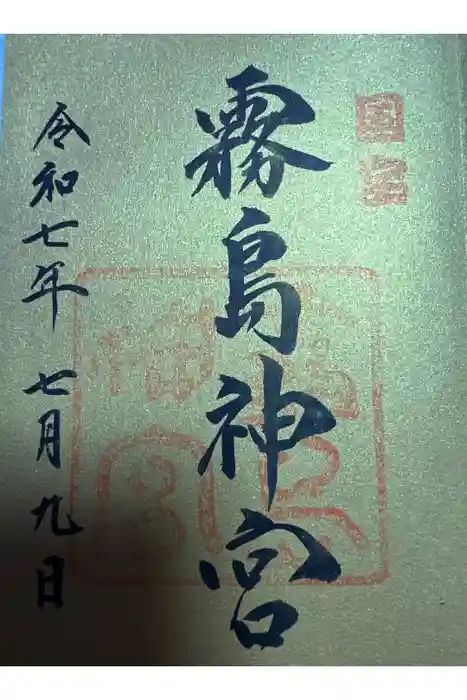 霧島神宮
令和七年 七月九日